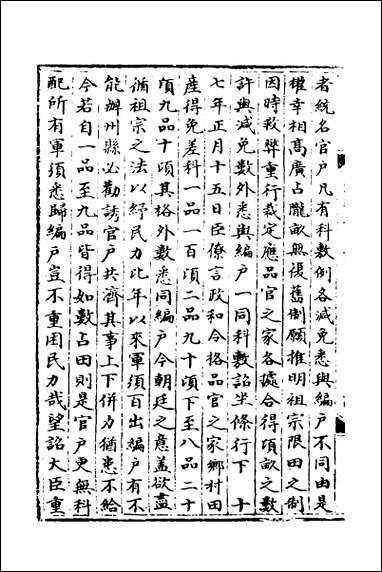 者統名官戶凡有科敷例各減免悉與編戶不同由是
權幸相髙廣占隴畝無復舊制願推明祖宗限田之制
因時救弊重行裁定應品官之家各處合得頃畝之數
許與減免數外悉與編戶一同科敷詔坐條行下　十
七年正月十五日臣僚言政和令格品官之家鄉村田
産得免差科一品一百頃二品九十頃下至八品二十
頃九品十頃其格外數悉同編戶今朝廷之意蓋欲盡
循祖宗之法以紓民力比年以來軍須百出編戶有不
能辦州縣必勸誘官戶共濟其事上下併力猶患不給
今若自一品至九品皆得如數占田則是官戶更無科
配所有軍須悉歸編戶豈不重困民力哉望詔大臣重